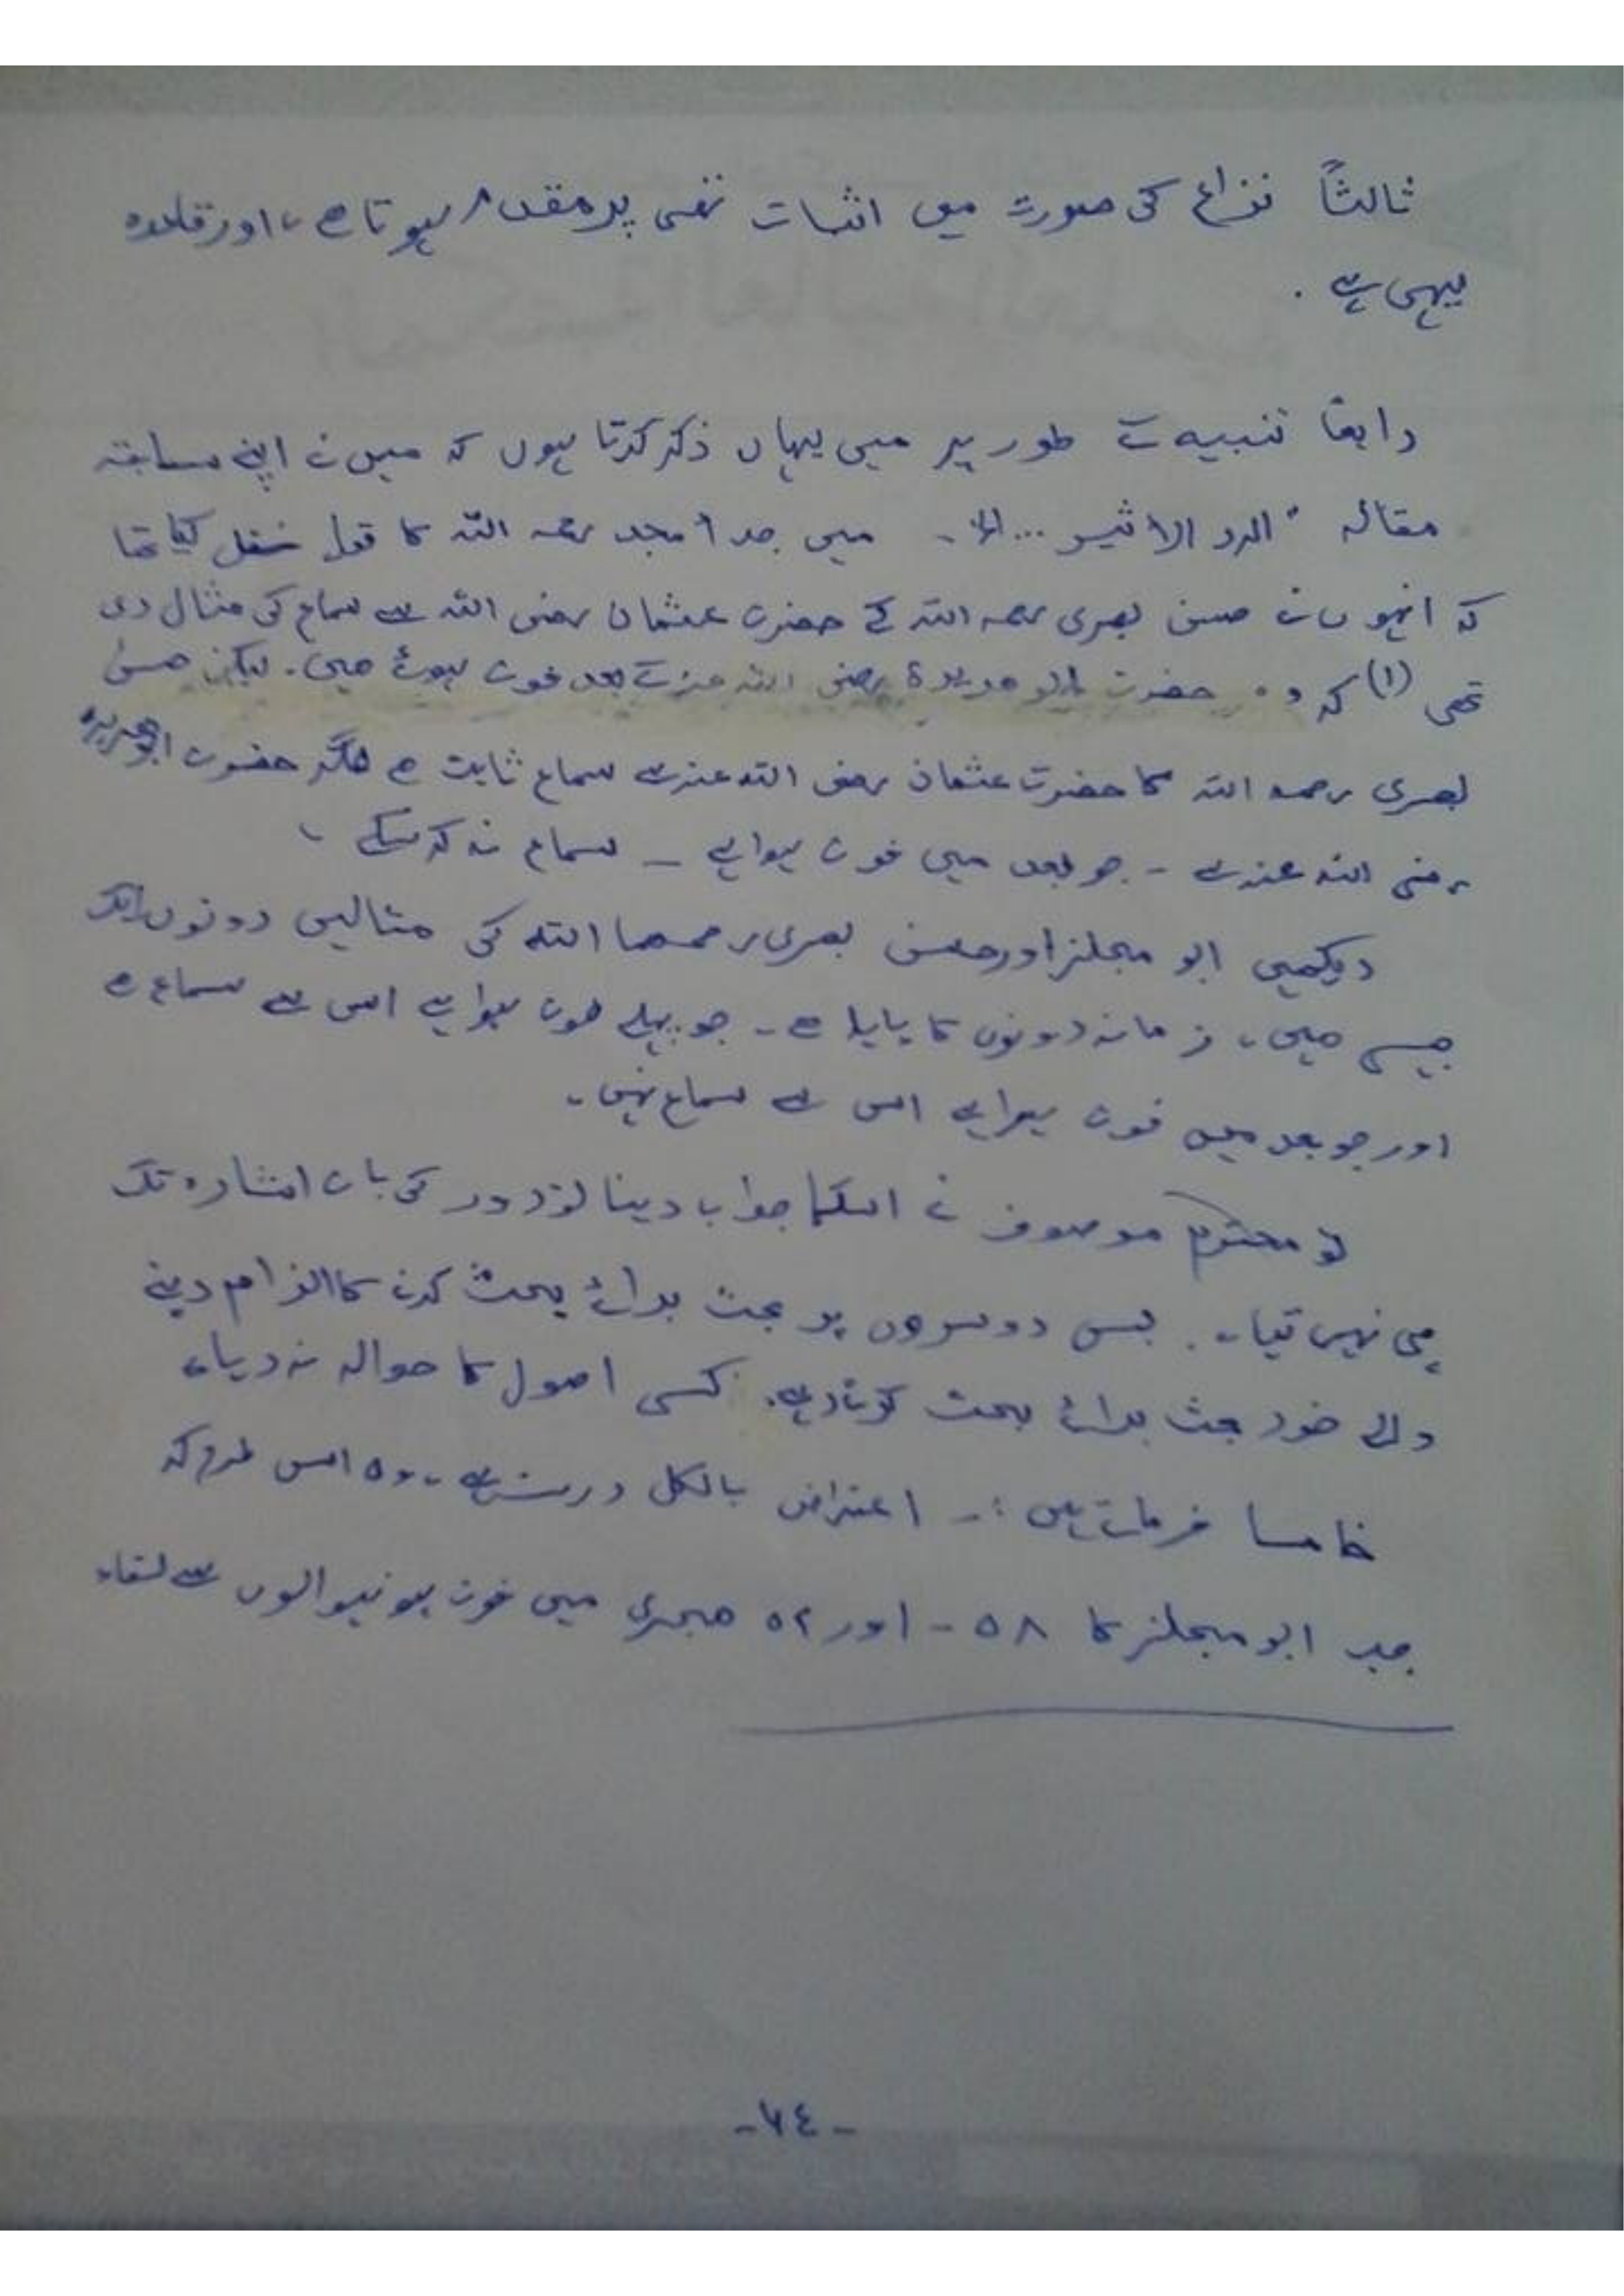 ثالثاً نزاع کی صورت میں اثبات نفی پر مقدم ہوتا ہے، اور قاعدہ
یہی ہے۔
رابعًا تنبیہ کے طور پر میں یہاں ذکر کرتا ہوں کہ میں نے اپنے سابقہ
مقالہ "الرد الاثیر ... الخ۔ میں جد أمجد رحمہ اللہ کا قول نقل کیا تھا
کہ انہوں نے حسن بصری رحمہ اللہ کے حضرت عثمان رضی اللہ سے سماع کی مثال دی
تھی (۱) کہ وہ حضرت ابو ھریرۃ رضی اللہ عنہ کے بعد فوت ہوئے ہیں۔ لیکن حسن
بصری رحمہ اللہ کا حضرت عثمان رضی اللہ عنہ سے سماع ثابت ہے مگر حضرت ابوھریرہ
رضی اللہ عنہ سے - جو بعد میں فوت ہوا ہے - سماع نہ کر سکے ،
دیکھیں ابو مجلز اور حسن بصری رحمھما اللہ کی مثالیں دونوں ایک
جیسی ہیں، زمانہ دونوں کا پایا ہے۔ جو پہلے فوت ہوا ہے اس سے سماع ہے
اور جو بعد میں فوت ہوا ہے اس سے سماع نہیں۔
تو محترم موصوف نے اسکا جواب دینا تو دور کی بات اشارہ تک
بھی نہیں کیا۔ بس دوسروں پر بحث برائے بحث کرنے کا الزام دینے
والے خود بحث برائے بحث کرتا رہے۔ کسی اصول کا حوالہ نہ دیا۔
خامسا فرماتے ہیں :۔ اعتراض بالکل درست ہے۔ وہ اس طرح کہ
جب ابو مجلز کا ۵۸ - اور ۵۲ ھجری میں فوت ہونیوالوں سے لقاء
-٦٤-